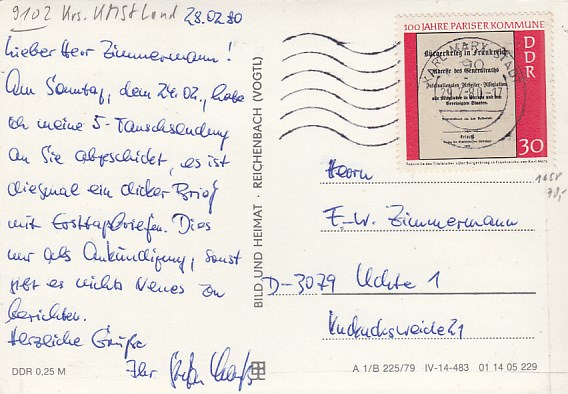 9102 Krs. KMSt Land 28.02.80
Lieber Herr Zimmermann!
Am Sonntag, dem 24.02., habe
ich meine 5-Tauschsendung
an Sie abgeschickt, es ist
diesmal ein dicker Brief
mit Ersttagsbriefen. Dies
nur als Ankündigung, sonst
gibt es nichts Neues zu
berichten.
Herzliche Grüße
Ihr
DDR 0,25 M
BILD UND HEIMAT · REICHENBACH (VOGTL)
100 JAHRE PARISER KOMMUNE
DDR
Bürgerkrieg in Frankreich
Adresse des Generalraths
der
Internationalen Arbeiter-Assoziation
an alle Mitglieder in Europa und den
Vereinigten Staaten.
30
KARL-MARX-STADT
90
29.2.80-17
Herrn
F.-W. Zimmermann
D-3079 Uchte 1
Kuckucksweide 21
1658
A 1/B 225/79 IV-14-483 01 14 05 229